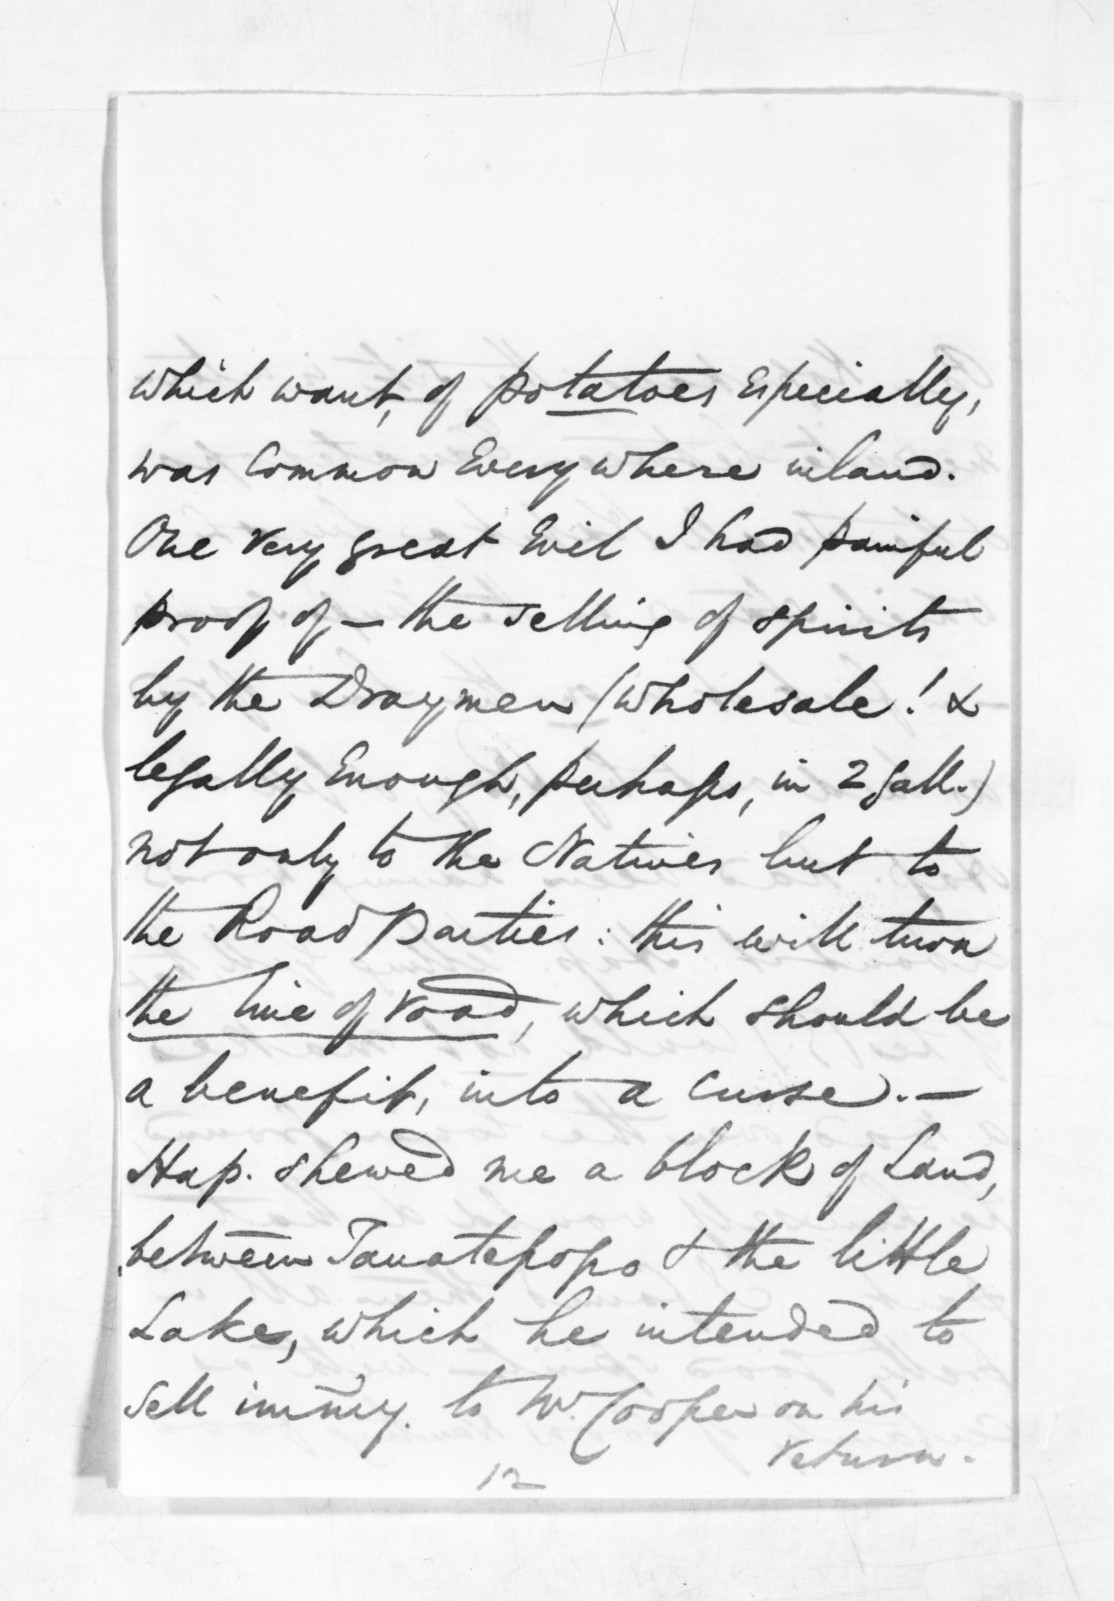 which want, of potatoes especially,
was common everywhere inland.
One very great Evil I had painful
proof of — the selling of spirits
by the Draymen (wholesale! &
legally enough, perhaps, in 2 gall.)
not only to the Natives but to
the Road Parties: this will turn
the line of road, which should be
a benefit, into a curse. —
Hap. shewed me a block of Land,
between Tauatepopo & the little
Lake, which he intended to
sell immy. to Mr. Cooper on his
return.
12